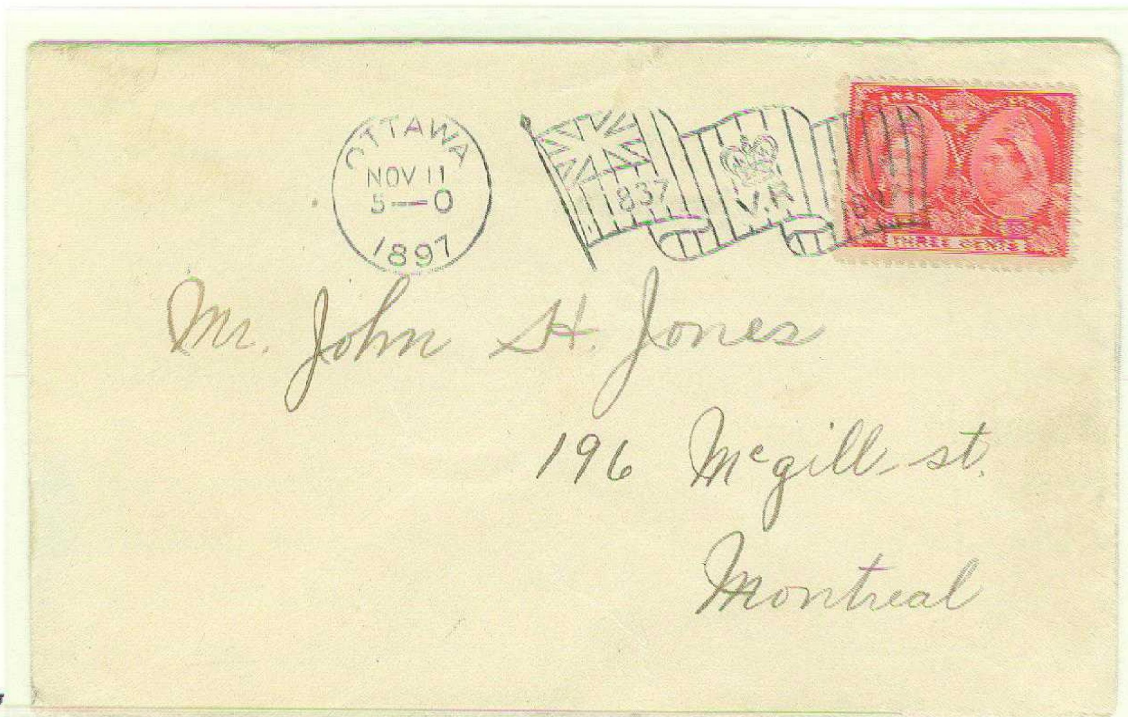 OTTAWA
NOV 11
5—0
1897
1837
V.R
1897
THREE CENTS
Mr. John H. Jones
196 McGill st.
Montreal